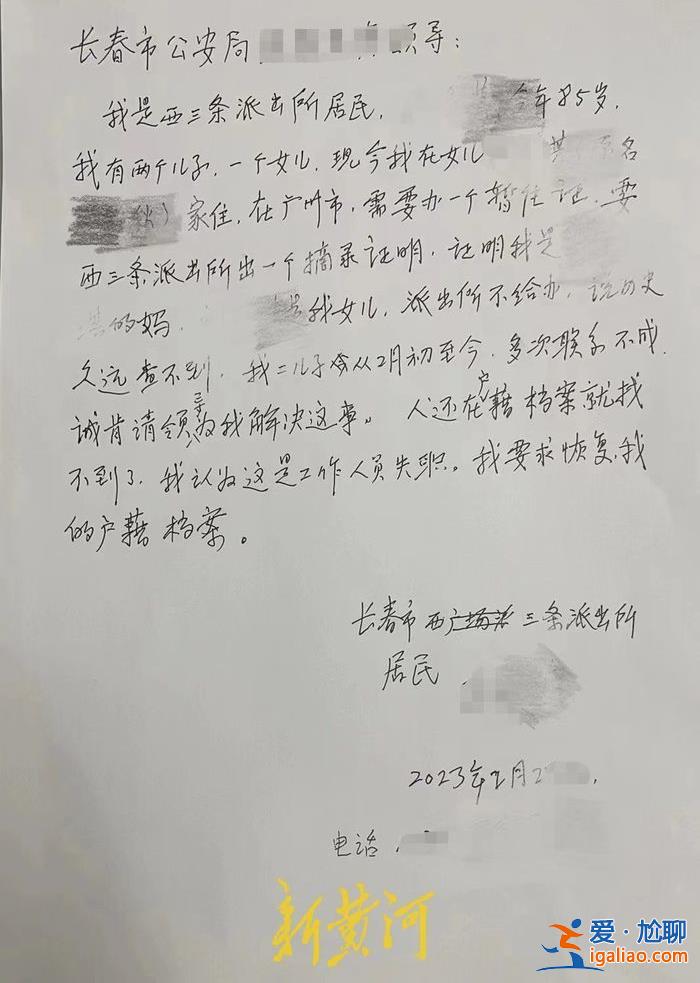 长春市公安局 领导：
我是西三条派出所居民， 今年85岁，
我有两个儿子，一个女儿，现今我在女儿 名
家住，在广州市，需要办一个暂住证，要
西三条派出所出一个摘录证明，证明我是
的妈， 是我女儿，派出所不给办，说历史
久远查不到，我二儿子从2月初至今，多次联系不成，
诚肯请领导为我解决这事。人还在户藉档案就找
不到了，我认为这是工作人员失职。我要求恢复我
的户藉档案。
长春市西三条派出所
居民
2023年2月2
电话
新黄河
爱·尬聊
igaliao.com